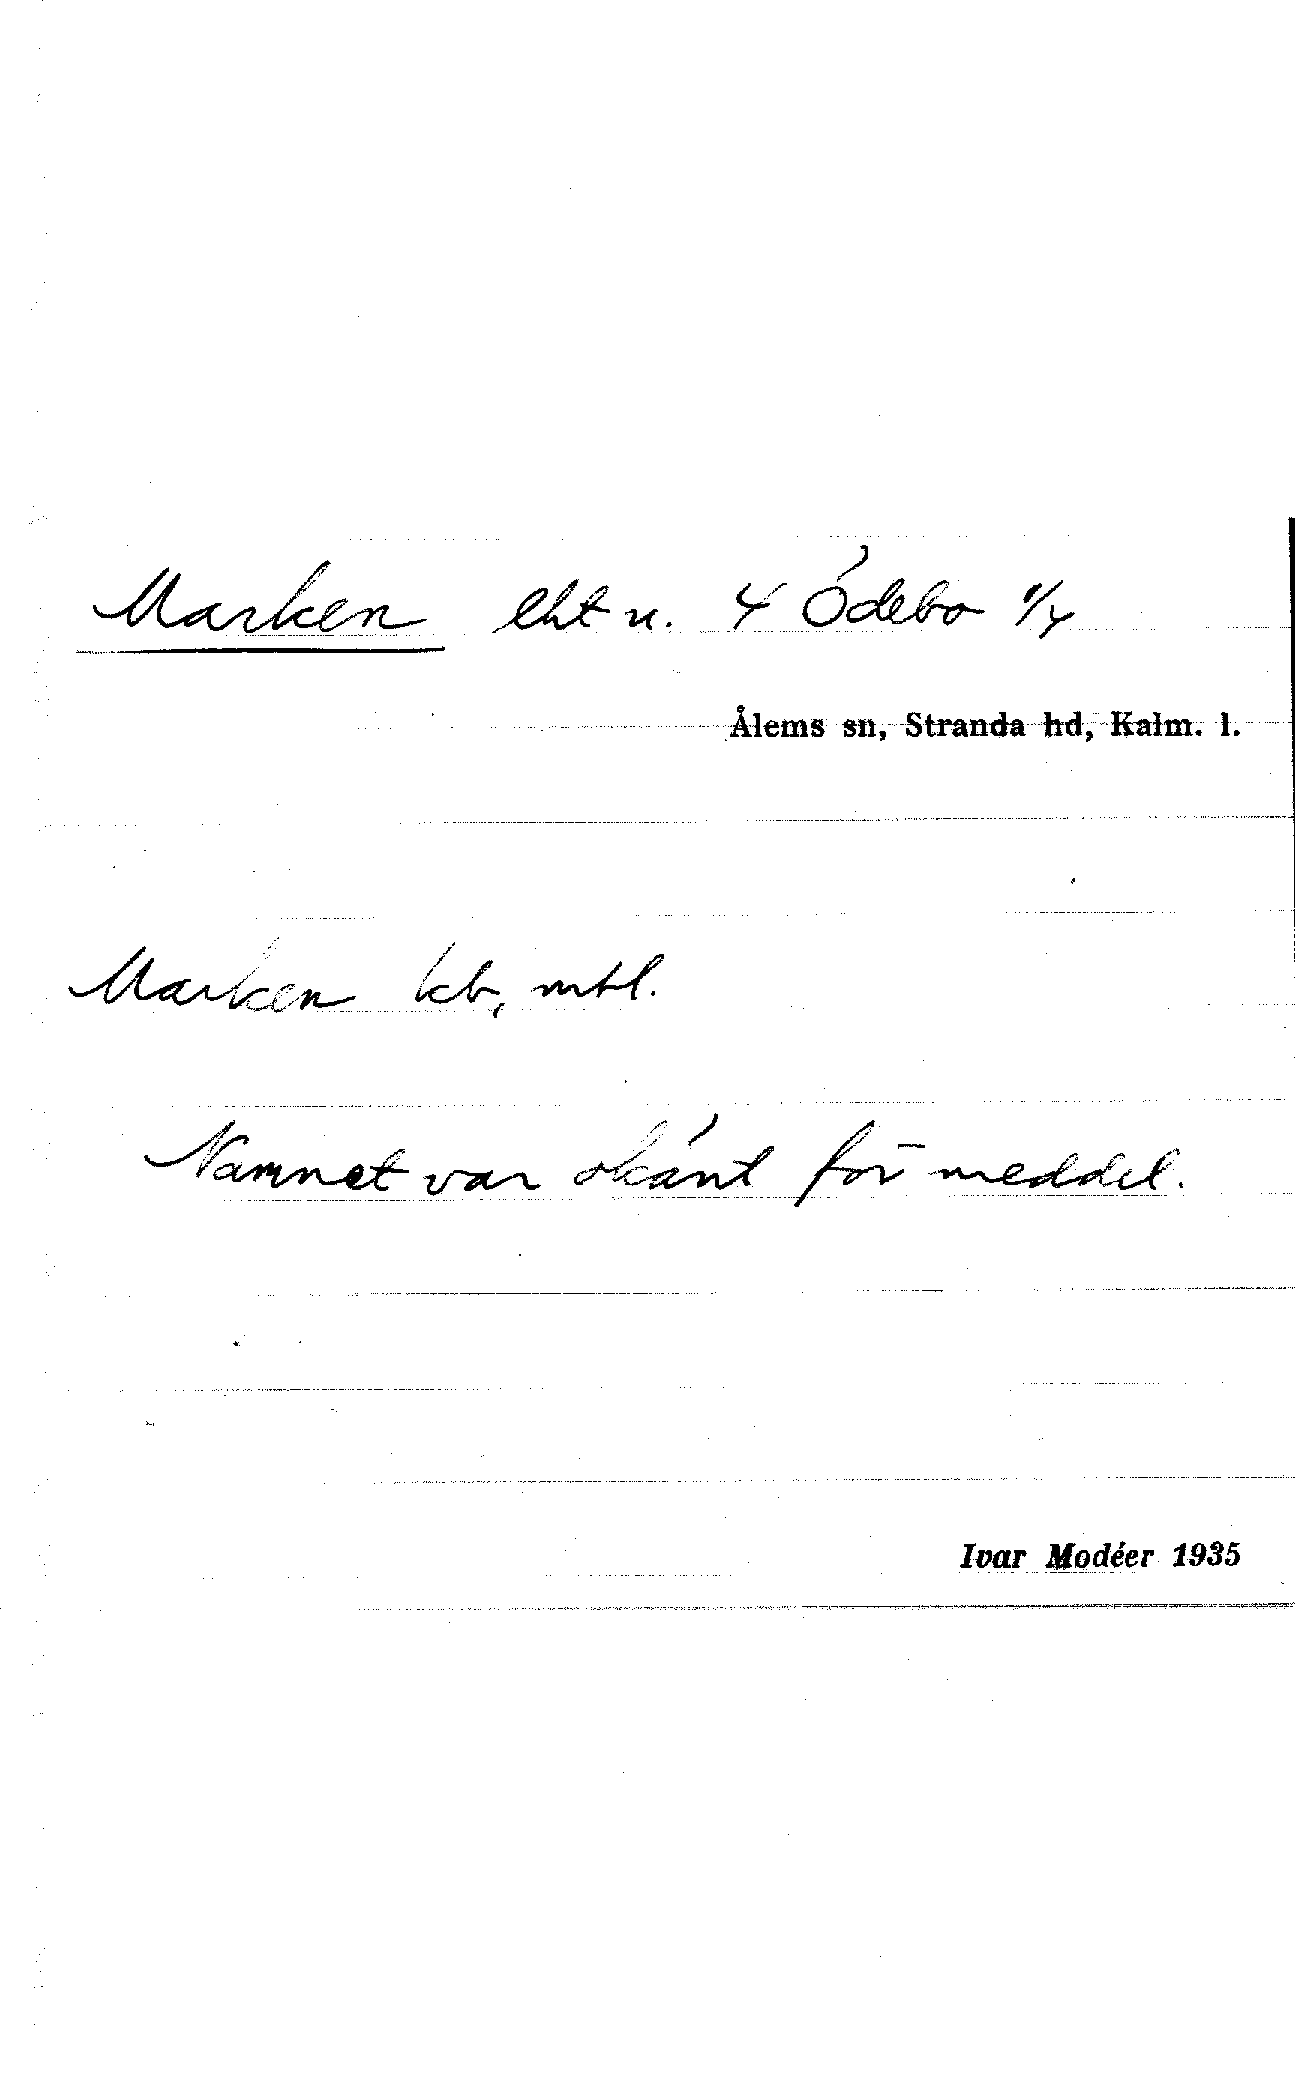 Marken lht u. 4 Ödebo 1/4
Ålems sn, Stranda hd, Kalm. l.
Marken kb, mtl.
Namnet var okänt för meddel.
Ivar Modéer 1935